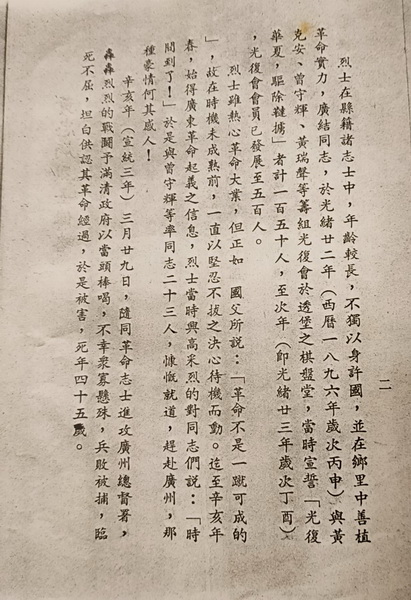 二
烈士在縣籍諸志士中，年齡較長，不獨以身許國，並在鄉里中善植
革命實力，廣結同志，於光緒廿二年（西曆一八九六年歲次丙申）與黃
克安、曾守輝、黃瑞聲等籌組光復會於透堡之棋盤堂，當時宣誓「光復
華夏，驅除韃擄」者計一百五十人，至次年（即光緒廿三年歲次丁酉）
，光復會會員已發展至五百人。
烈士雖熱心革命大業，但正如　國父所說：「革命不是一蹴可成的
」，故在時機未成熟前，一直以堅忍不拔之決心待機而動。迄至辛亥年
春，始得廣東革命起義之信息，烈士當時興高采烈的對同志們說：「時
間到了！」於是與曾守輝等率同志二十三人，慷慨就道，趕赴廣州，那
種豪情何其感人！
辛亥年（宣統三年）三月廿九日，隨同革命志士進攻廣州總督署，
轟轟烈烈的戰鬪予滿清政府以當頭棒喝，不幸眾寡懸殊，兵敗被捕，臨
死不屈，坦白供認其革命經過，於是被害，死年四十五歲。